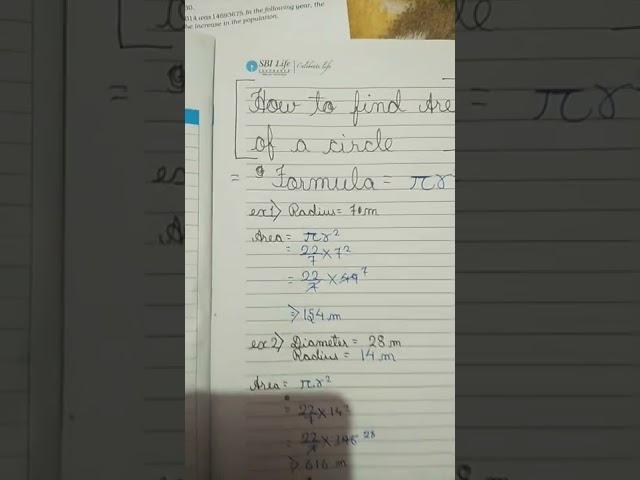 30.
014 was 14693675. In the following year, the
e increase in the population.
SBI Life
INSURANCE
Celebrate Life
How to find Are
of a circle
= Formula = πr
ex1) Radius = 7 m
Area = πr²
= 22/7 × 7²
= 22/7 × 49 7
⇒ 154 m
ex2) Diameter = 28 m
Radius = 14 m
Area = πr²
= 22/7 × 14²
= 22/7 × 196 28
⇒ 616 m